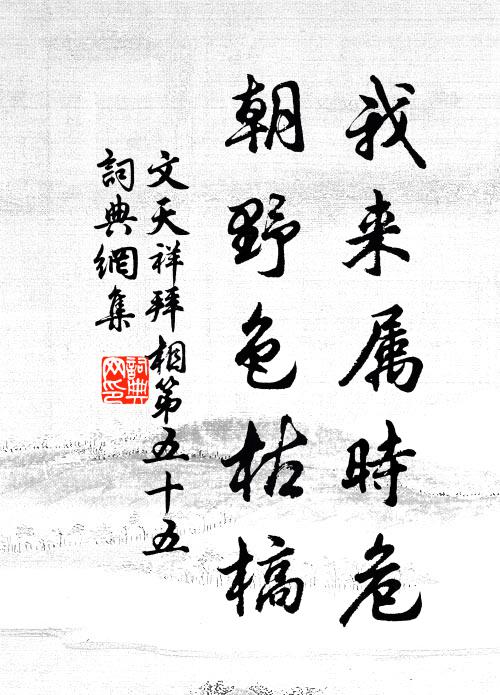 我来属時危
朝野色枯槁
文天祥拜相第五十五
詞典網集
詞典
网印